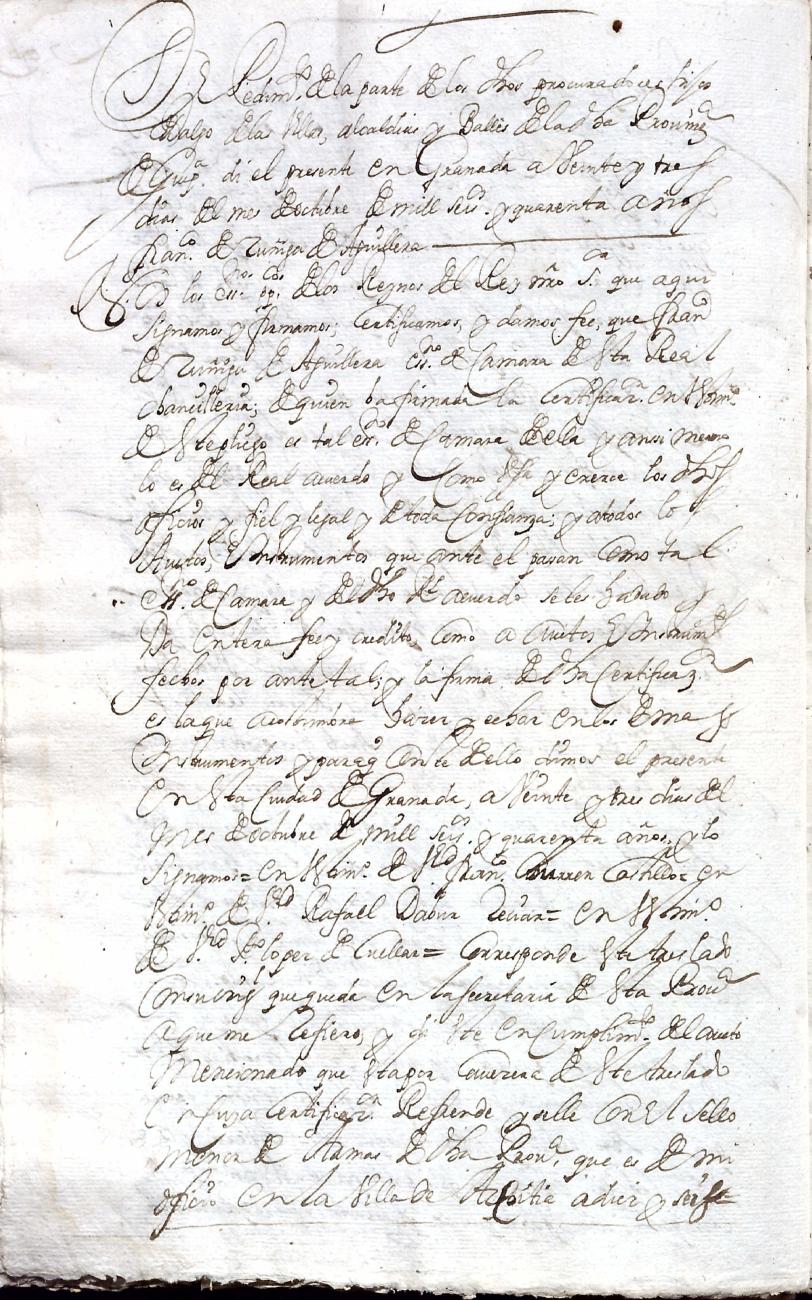 De Pedimᵗᵒ de la parte de los dhos procuradores hijos
dalgo de las Villas, alcaldias y Valles de la dha Prouinᵃ
de Guipᵃ. di el presente en Granada a Veinte y tres
dias del mes de octubre de mill seisᵒˢ. y quarenta años
franᶜᵒ. de Zuñiga de Aguillera
los essⁿᵒˢ ppᶜᵒˢ. de los Reynos del Rey nro sʳ. que aqui
signamos y firmamos; Certificamos, y damos fee, que franᶜᵒ
de Zuñiga de Aguillera essⁿᵒ. de Camara de Esta Real
chancilleria; de quien ba firmada la Certificaᵒⁿ. en testimᵒ
de Este pliego es tal essⁿᵒ. de Camara de ella y ansi mesmo
lo es del Real acuerdo y Como tal Vssa y exerce los dhos
oficios y fiel y legal y de toda Confianza; y a todos lo s
Auctos, e Instrumentos que ante el pasan Como tal
essⁿᵒ. de Camara y del dho Rˡ acuerdo se les ha dado y
Da entera fee y credito, Como a auctos e Instrumᵗᵒˢ
fechos por ante tal; y la firma de dha Certificazᵒⁿ
es la que acostumbra hazer y echar en los demas
Instrumentos y para q Conste de ello dimos el presente
en Esta Ciudad de Granada, a Veinte y tres dias del
mes de octubre de mill seisᵒˢ. y quarenta años, y lo
signamos= en testimᵒ. de Vʳᵈ franᶜᵒ. Castillo= en
testimᵒ. de Vʳᵈ Rafael = en testimᵒ.
de Vʳᵈ lopez de Cuellar= Corresponde Este treslado
Con su origˡ que queda en la secretaria de Esta Prouᵃ
a que me Refiero, y di Este en Cumplimᵗᵒ. del aucto
Mencionado que Esta por Cauecera de Este treslado
en Cuya Certificaᵒⁿ. Refrende y selle Con El sello
menor de Armas de dha Prouᵃ. que es de mi
oficio en la Villa de Azpeitia a diez y seis=